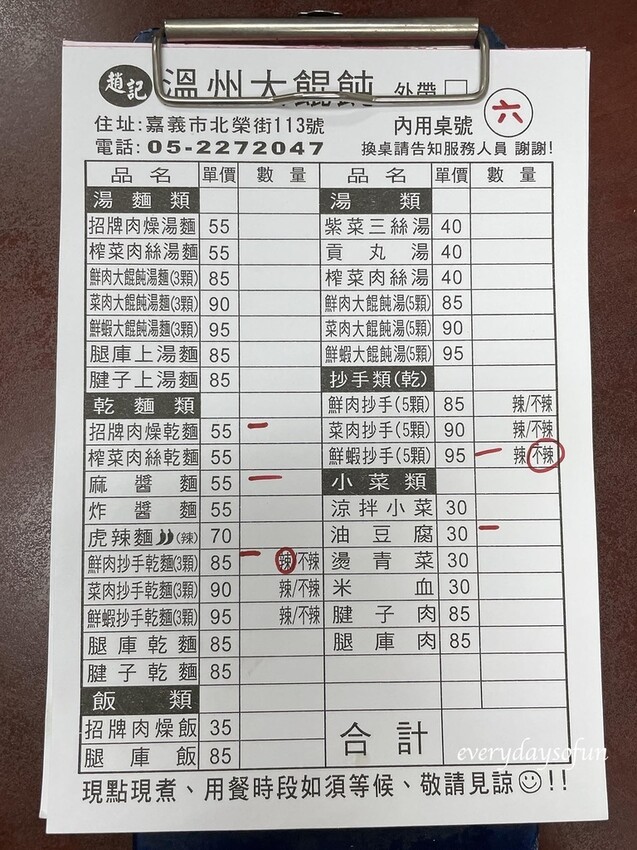 趙記 溫州大餛飩 外帶
住址:嘉義市北榮街113號 內用桌號 六
電話:05-2272047 換桌請告知服務人員 謝謝!
品名 單價 數量 品名 單價 數量
湯麵類 湯類
招牌肉燥湯麵 55 紫菜三絲湯 40
榨菜肉絲湯麵 55 貢丸湯 40
鮮肉大餛飩湯麵(3顆) 85 榨菜肉絲湯 40
菜肉大餛飩湯麵(3顆) 90 鮮肉大餛飩湯(5顆) 85
鮮蝦大餛飩湯麵(3顆) 95 菜肉大餛飩湯(5顆) 90
腿庫上湯麵 85 鮮蝦大餛飩湯(5顆) 95
腱子上湯麵 85 抄手類(乾)
乾麵類 鮮肉抄手(5顆) 85 辣/不辣
招牌肉燥乾麵 55 一 菜肉抄手(5顆) 90 辣/不辣
榨菜肉絲乾麵 55 鮮蝦抄手(5顆) 95 一 辣/不辣
麻醬麵 55 一 小菜類
炸醬麵 55 涼拌小菜 30
虎辣麵(辣) 70 油豆腐 30 一
鮮肉抄手乾麵(3顆) 85 一 辣/不辣 燙青菜 30
菜肉抄手乾麵(3顆) 90 辣/不辣 米血 30
鮮蝦抄手乾麵(3顆) 95 辣/不辣 腱子肉 85
腿庫乾麵 85 腿庫肉 85
腱子乾麵 85
飯類
招牌肉燥飯 35 合計
腿庫飯 85
everydaysofun
現點現煮、用餐時段如須等候、敬請見諒☺!!